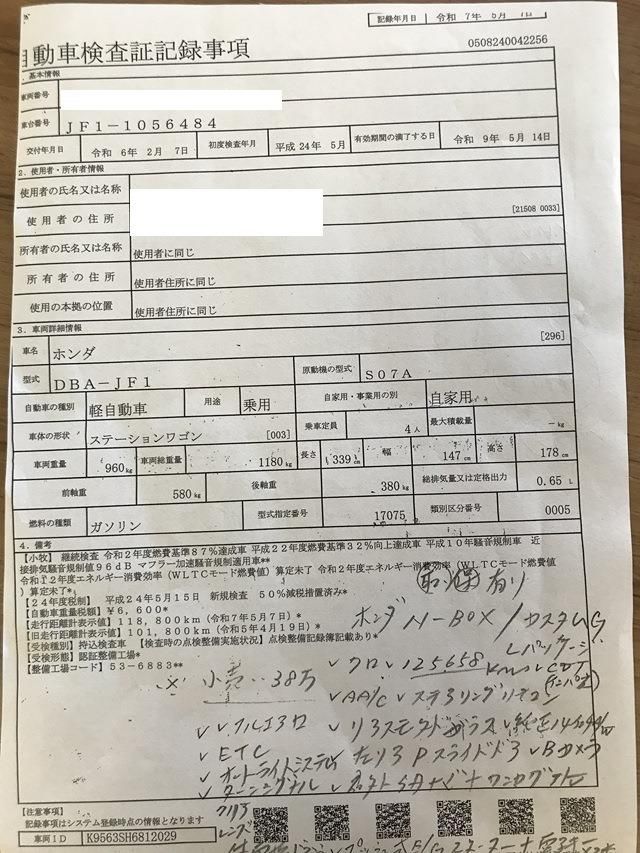 記録年月日 令和 7年 5月 7日
0508240042256
自動車検査証記録事項
1. 基本情報
車両番号
車台番号 JF1-1056484
交付年月日 令和 6年 2月 7日 初度検査年月 平成 24年 5月 有効期間の満了する日 令和 9年 5月 14日
2. 使用者・所有者情報
使用者の氏名又は名称
使用者の住所 [21508 0033]
所有者の氏名又は名称 使用者に同じ
所有者の住所 使用者住所に同じ
使用の本拠の位置 使用者住所に同じ
3. 車両詳細情報
車名 ホンダ [296]
型式 DBA-JF1 原動機の型式 S07A
自動車の種別 軽自動車 用途 乗用 自家用・事業用の別 自家用
車体の形状 ステーションワゴン [003] 乗車定員 4人 最大積載量 -kg
車両重量 960kg 車両総重量 1180kg 長さ 339cm 幅 147cm 高さ 178cm
前軸重 580kg 後軸重 380kg 総排気量又は定格出力 0.65 L
燃料の種類 ガソリン 型式指定番号 17075 類別区分番号 0005
4. 備考
【小牧】 継続検査 令和2年度燃費基準87%達成車 平成22年度燃費基準32%向上達成車 平成10年騒音規制車 近
接排気騒音規制値96dB マフラー加速騒音規制適用車**
令和12年度エネルギー消費効率(WLTCモード燃費値)算定未了 令和2年度エネルギー消費効率(WLTCモード燃費値
)算定未了*
【24年度税制】 平成24年5月15日 新規検査 50%減税措置済み*
【自動車重量税額】¥6,600*
【走行距離計表示値】118,800km(令和7年5月7日)
【旧走行距離計表示値】101,800km(令和5年4月19日)*
【受検種別】持込検査車 【検査時の点検整備実施状況】点検整備記録簿記載あり*
【受検形態】認証整備工場*
【整備工場コード】53-6883**
取 保 有り
ホンダ N-BOX/カスタムG
Lパッケージ
クロ 125.658Km CDT
小売 38万
AA/C ステアリングリモコン
アルミ
ETC 左リヤPスライドドア Bカメラ
オートライトシステム
クリア
レンズ
【注意事項】
記録事項はシステム登録時点の情報となります
車両ID K9563SH6812029